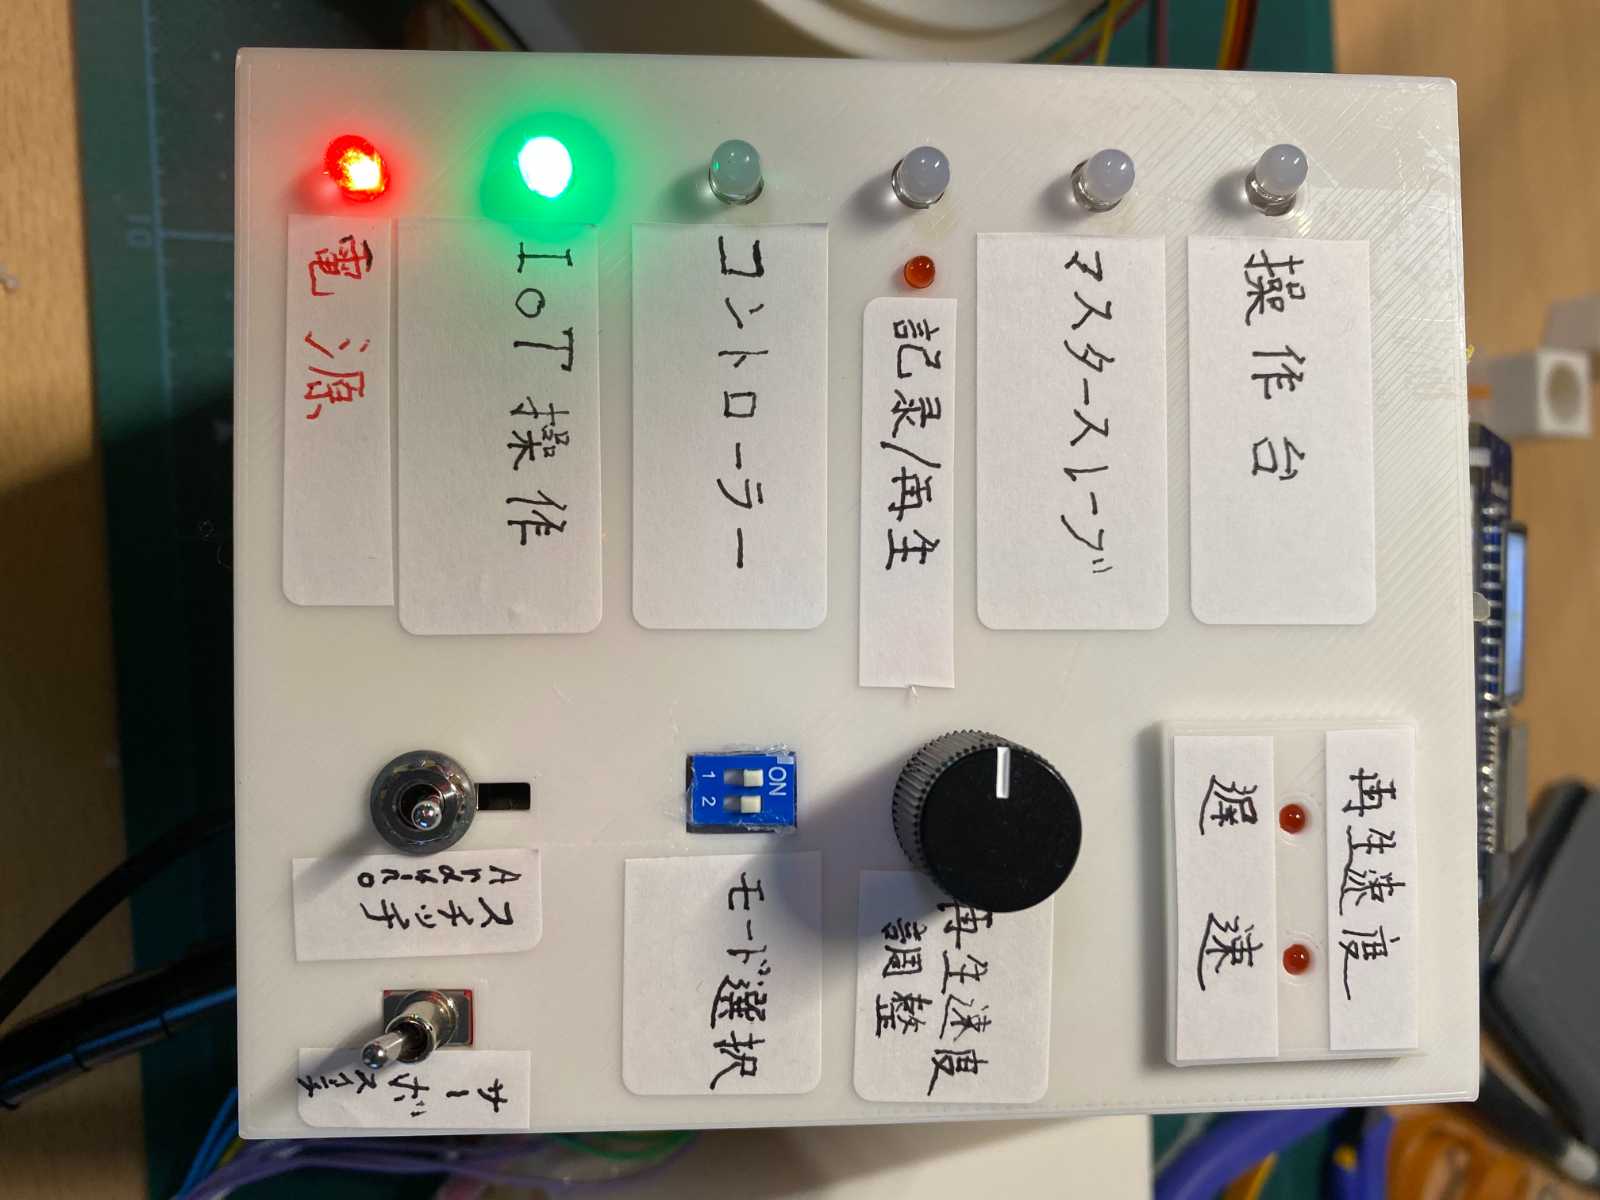 操作台
マスタースレーブ
記录/再生
コントローラー
IoT操作
電源
再生速度
遅 速
再生速度
調整
ON
1 2
モード選択
スチッチ
Arduino
サーボスイッチ
10